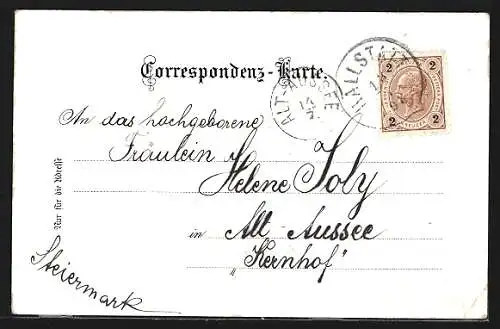 Correspondenz-Karte.
HALLSTATT
ALT-AUSSEE
14
7
2 2
2 2
An das hochgeborene
Fräulein
Helene Joly
in Alt Aussee
„Kernhof"
Steiermark
Nur für die Adresse